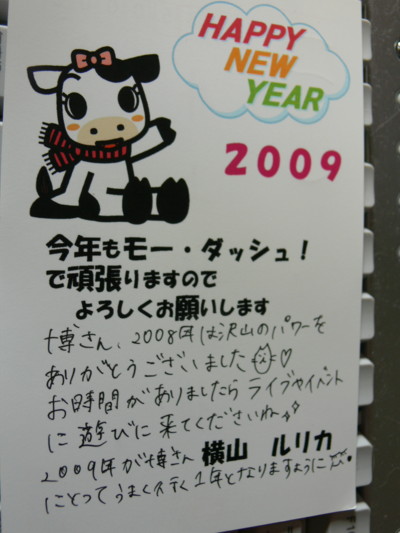 HAPPY
NEW
YEAR
2009
今年もモー・ダッシュ!
で頑張りますので
よろしくお願いします
博さん、2008年は沢山のパワーを
ありがとうございました♡
お時間がありましたらライブやイベント
に遊びに来てくださいね
2009年が博さん
横山 ルリカ
にとってうまくステく1年となりますように